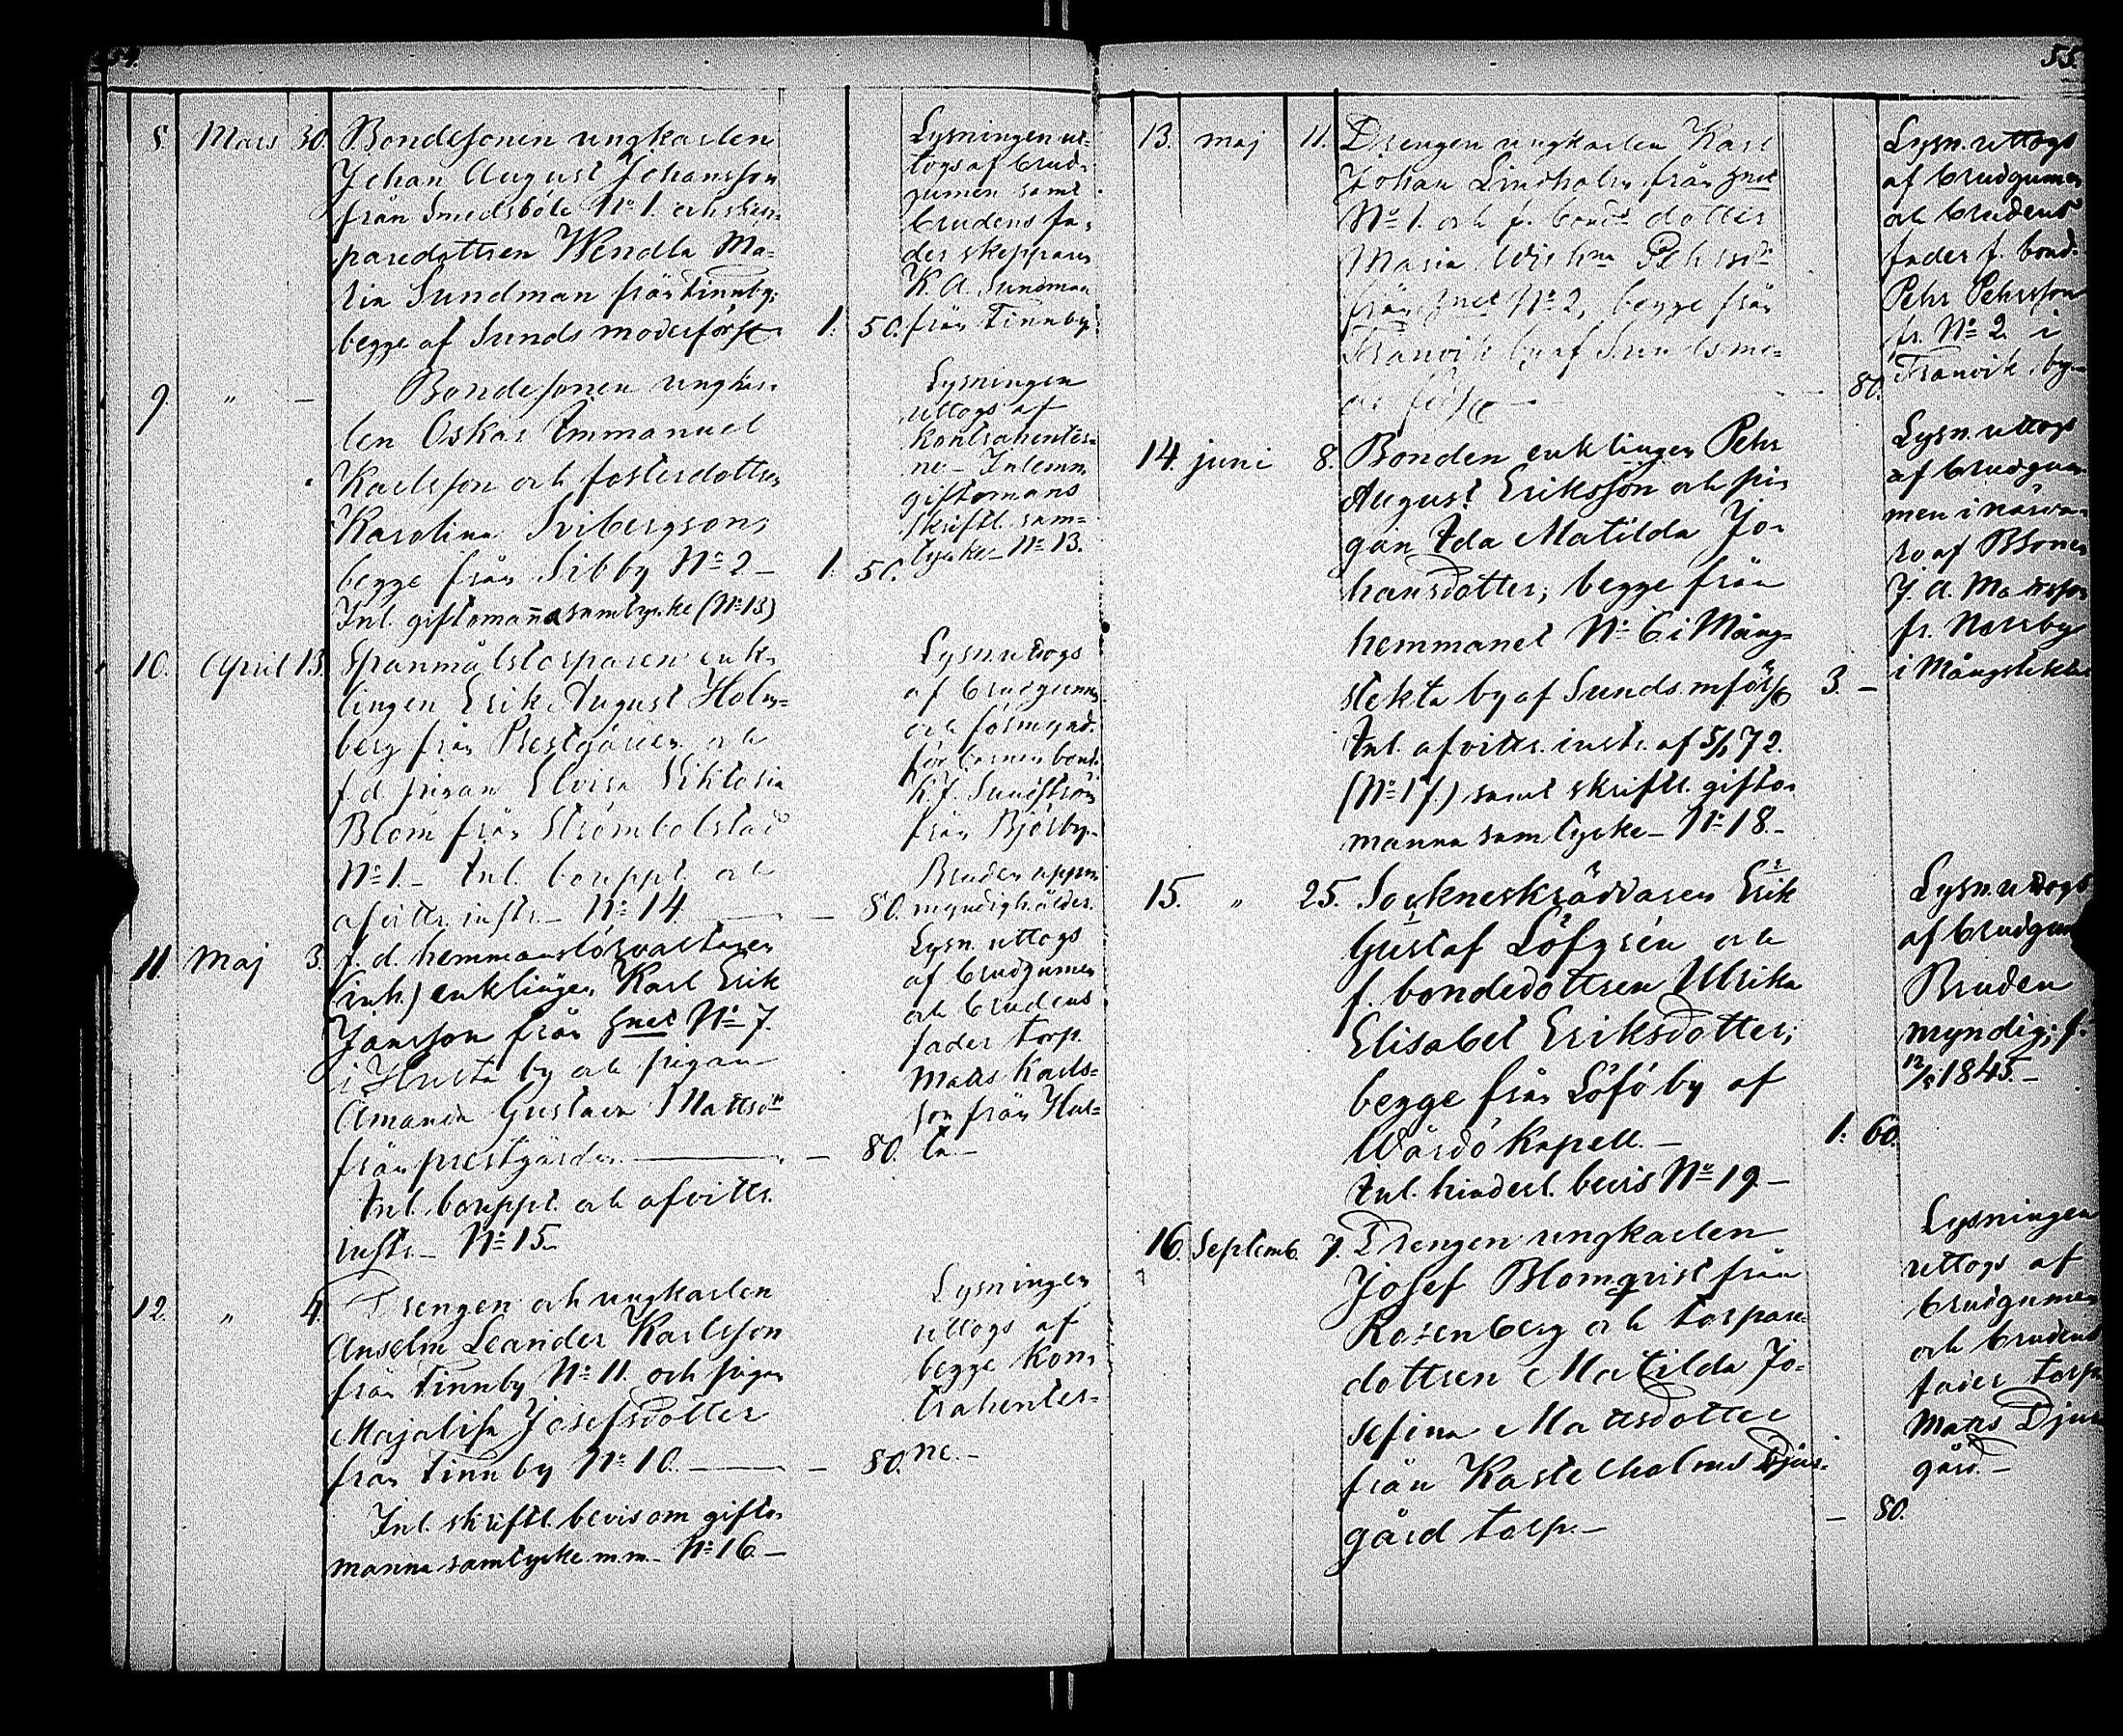 54.
8. Mars 30. Bondesonen ungkarlen
Johan August Johansson
från Smedsböle N:o 1. och skep-
paredottren Wendla Ma-
ria Sundman från Finnby;
begge af Sunds moderförs.
1. 50.
Lysningen ut-
togs af brud-
gumen samt
brudens fa-
der skepparen
K. A. Sundman
från Finnby.
9. " – Bondesonen ungkar-
len Oskar Immanuel
Karlsson och fosterdottren
Karolina Svibergson;
begge från Sibby N:o 2 –
1. 50.
Inl. giftomannasamtycke (N:o 13)
Lysningen
uttogs af
kontrahenter-
ne – Inlemn.
giftomans
skriftl. sam-
tycke – N:o 13.
10. April 13. Spanmålstorparen enk-
lingen Erik August Holm-
berg från Prestgården och
f.d. pigan Lovisa Viktoria
Blom från Strömbolstad
N:o 1. – Inl. bouppt. och
afvittr. instr. – N:o 14. – 80.
Lysn. uttogs
af brudgumen
och förmynd.
för barnen bond.
K. J. Sundström
från Björby. –
Bruden uppn.
myndigh. ålder.
11. Maj 3. f. d. hemmansförvaltaren
(inh.) enklingen Karl Erik
Jansson från hmet N:o 7.
i Hulta by och pigan
Amanda Gustava Mattsdr
från prestgården – – 80.
Inl. bouppt. och afvittr.
instr. – N:o 15. –
Lysn. uttogs
af brudgumen
och brudens
fader torp.
Matts Karls-
son från Hul-
ta –
12. " 4. Drengen och ungkarlen
Anselm Leander Karlsson
från Finnby N:o 11. och pigan
Majalisa Josefsdotter
från Finnby N:o 10. – – 80.
Inl. skriftl. bevis om gifto-
manna samtycke m.m. – N:o 16 –
Lysningen
uttogs af
begge kon-
trahenter-
ne. –
55.
13. maj 11. Drengen ungkarlen Karl
Johan Lindholm från hmet
N:o 1. och f. bonde dotter
Maria Wilhma Pehrsdr
från hmet N:o 2, begge från
Tranvik by af Sunds mo-
der förs. – – 80.
Lysn. uttogs
af brudgumen
och brudens
fader f. bond.
Pehr Pehrsson
fr. N:o 2 i
Tranvik by –
14. juni 8. Bonden enklingen Pehr
August Eriksson och pi-
gan Ida Matilda Jo-
hansdotter; begge från
hemmanet N:o 6 i Mång-
stekta by af Sunds mförs. 3. –
Inl. afvittr. instr. af 5/1 72.
(N:o 17.) samt skriftl. gifto-
manna samtycke – N:o 18. –
Lysn. uttogs
af brudgu-
men i närva-
ro af Bonen
J. A. Mattsson
fr. Norrby
i Mångstekta
15. " 25. Sockneskräddaren Erik
Gustaf Löfgrén och
f. bondedottren Ulrika
Elisabet Eriksdotter;
begge från Löfö by af
Wårdö kapell. –
1. 60.
Inl. hinderl. bevis N:o 19. –
Lysn. uttogs
af brudgum
Bruden
myndig; f.
12/5 1845. –
16. Septemb. 7. Drengen ungkarlen
Josef Blomqvist från
Rosenberg och torpare-
dottren Matilda Jo-
sefina Mattsdotter
från Kastelholms Djur-
gård torp. –
– 80.
Lysningen
uttogs af
brudgumen
och brudens
fader torp.
Matts Djur
gård. –